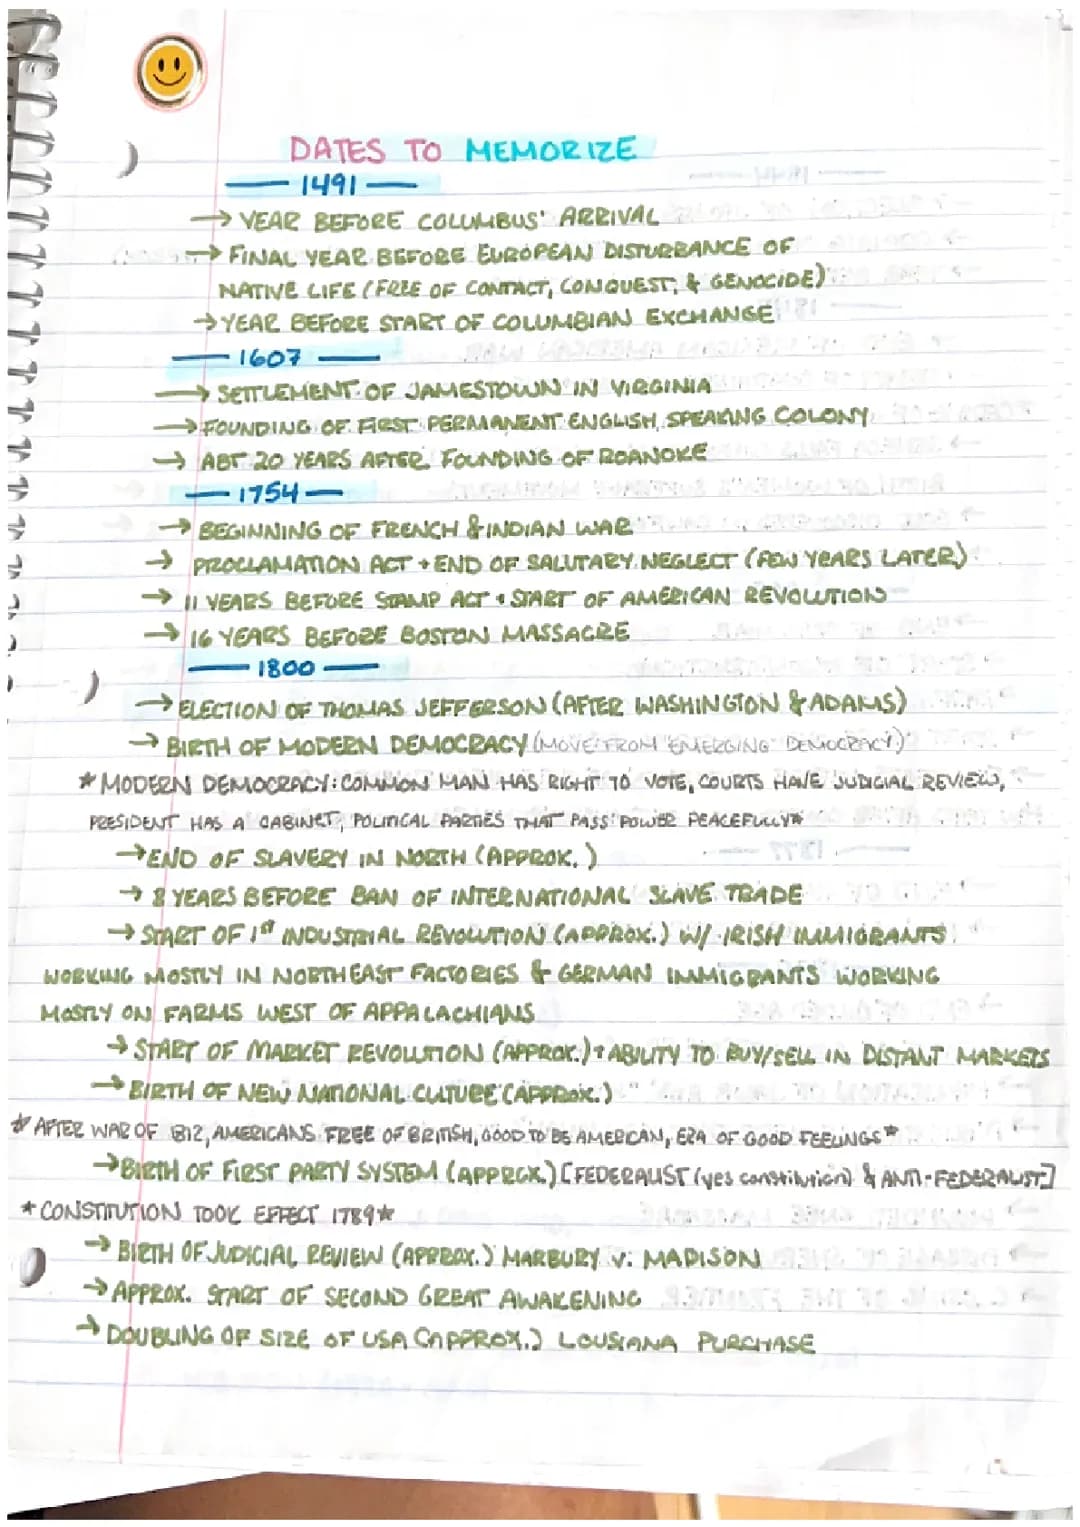 DATES TO MEMORIZE
— 1491 —
→ YEAR BEFORE COLUMBUS' ARRIVAL
→ FINAL YEAR BEFORE EUROPEAN DISTURBANCE OF
NATIVE LIFE (FREE OF CONTACT, CONQUEST, & GENOCIDE)
→ YEAR BEFORE START OF COLUMBIAN EXCHANGE
— 1607 —
→ SETTLEMENT OF JAMESTOWN IN VIRGINIA
→ FOUNDING OF FIRST PERMANENT ENGLISH SPEAKING COLONY
→ ABT 20 YEARS AFTER FOUNDING OF ROANOKE
— 1754 —
→ BEGINNING OF FRENCH & INDIAN WAR
→ PROCLAMATION ACT + END OF SALUTARY NEGLECT (FEW YEARS LATER)
→ 11 YEARS BEFORE STAMP ACT + START OF AMERICAN REVOLUTION
→ 16 YEARS BEFORE BOSTON MASSACRE
— 1800 —
→ ELECTION OF THOMAS JEFFERSON (AFTER WASHINGTON & ADAMS)
→ BIRTH OF MODERN DEMOCRACY (MOVE FROM "EMERGING" DEMOCRACY)
* MODERN DEMOCRACY: COMMON MAN HAS RIGHT TO VOTE, COURTS HAVE JUDICIAL REVIEW,
PRESIDENT HAS A CABINET, POLITICAL PARTIES THAT PASS POWER PEACEFULLY*
→ END OF SLAVERY IN NORTH (APPROX.)
→ 8 YEARS BEFORE BAN OF INTERNATIONAL SLAVE TRADE
→ START OF 1st INDUSTRIAL REVOLUTION (APPROX.) W/ IRISH IMMIGRANTS
WORKING MOSTLY IN NORTHEAST FACTORIES & GERMAN IMMIGRANTS WORKING
MOSTLY ON FARMS WEST OF APPALACHIANS
→ START OF MARKET REVOLUTION (APPROX.) + ABILITY TO BUY/SELL IN DISTANT MARKETS
→ BIRTH OF NEW NATIONAL CULTURE (APPROX.)
* AFTER WAR OF 1812, AMERICANS FREE OF BRITISH, GOOD TO BE AMERICAN, ERA OF GOOD FEELINGS *
→ BIRTH OF FIRST PARTY SYSTEM (APPROX.) [FEDERALIST (yes constitution) & ANTI-FEDERALIST]
* CONSTITUTION TOOK EFFECT 1789 *
→ BIRTH OF JUDICIAL REVIEW (APPROX.) MARBURY V. MADISON
→ APPROX. START OF SECOND GREAT AWAKENING
→ DOUBLING OF SIZE OF USA (APPROX.) LOUSIANA PURCHASE